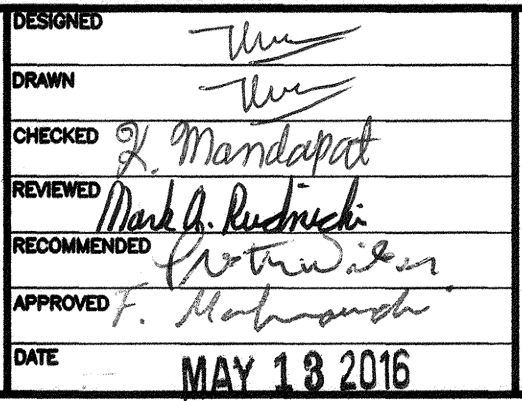 DESIGNED
DRAWN
CHECKED K. Mandapat
REVIEWED Mark A. Rudnicki
RECOMMENDED
APPROVED F.
DATE MAY 13 2016